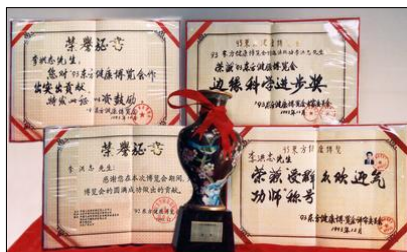 荣誉证书
李洪志先生:
您对'93东方健康博览会作
出突出贡献,
特发此证以资鼓励
'93东方健康博览会
1993年12月
荣获'93东方健康博览会
边缘科学进步奖
'93东方健康博览会
荣誉证书
李洪志先生:
感谢您在本次博览会期间,
博览会的圆满成功做出的贡献。
'93东方健康博览会
93东方健康博览
李洪志先生:
荣获受群众欢迎气
功师称号
'93东方健康博览会评审委员会
1993年12月